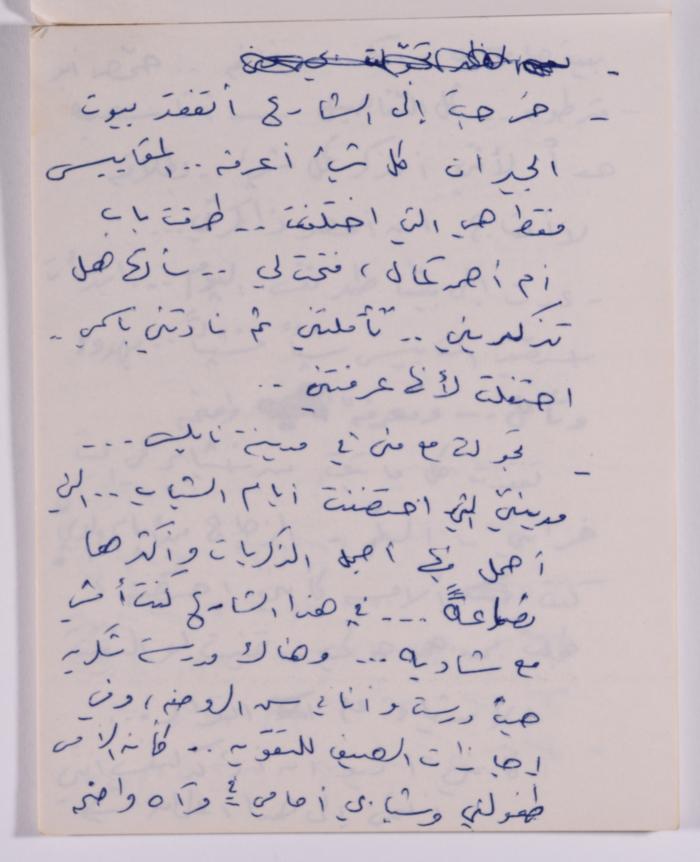 - خرجت إلى الشارع أتفقد بيوت
الجيران كل شيء أعرفه .. المقاييس
فقط هي التي اختلفت .. طرقت باب
أم أحمد كمال، فتحت لي .. سألتها هل
تذكريني .. تأملتني ثم نادتني باسمي ..
احتفلت لأنها عرفتني ..
- تجولت مع منى في مدينة نابلس ...
مدينتي التي احتضنت أيام الشباب .. التي
أحمل فيها أجمل الذكريات وأكثرها
نصاعةً ... في هذا الشارع كنت أمشي
مع شادية ... وهناك مدرسة
حيث درست وأنا في سن الروضة، وفي
إجازات الصيف للتقوية .. كأنه الأمس
طفولتي وشبابي أمامي في مرآه واضحة